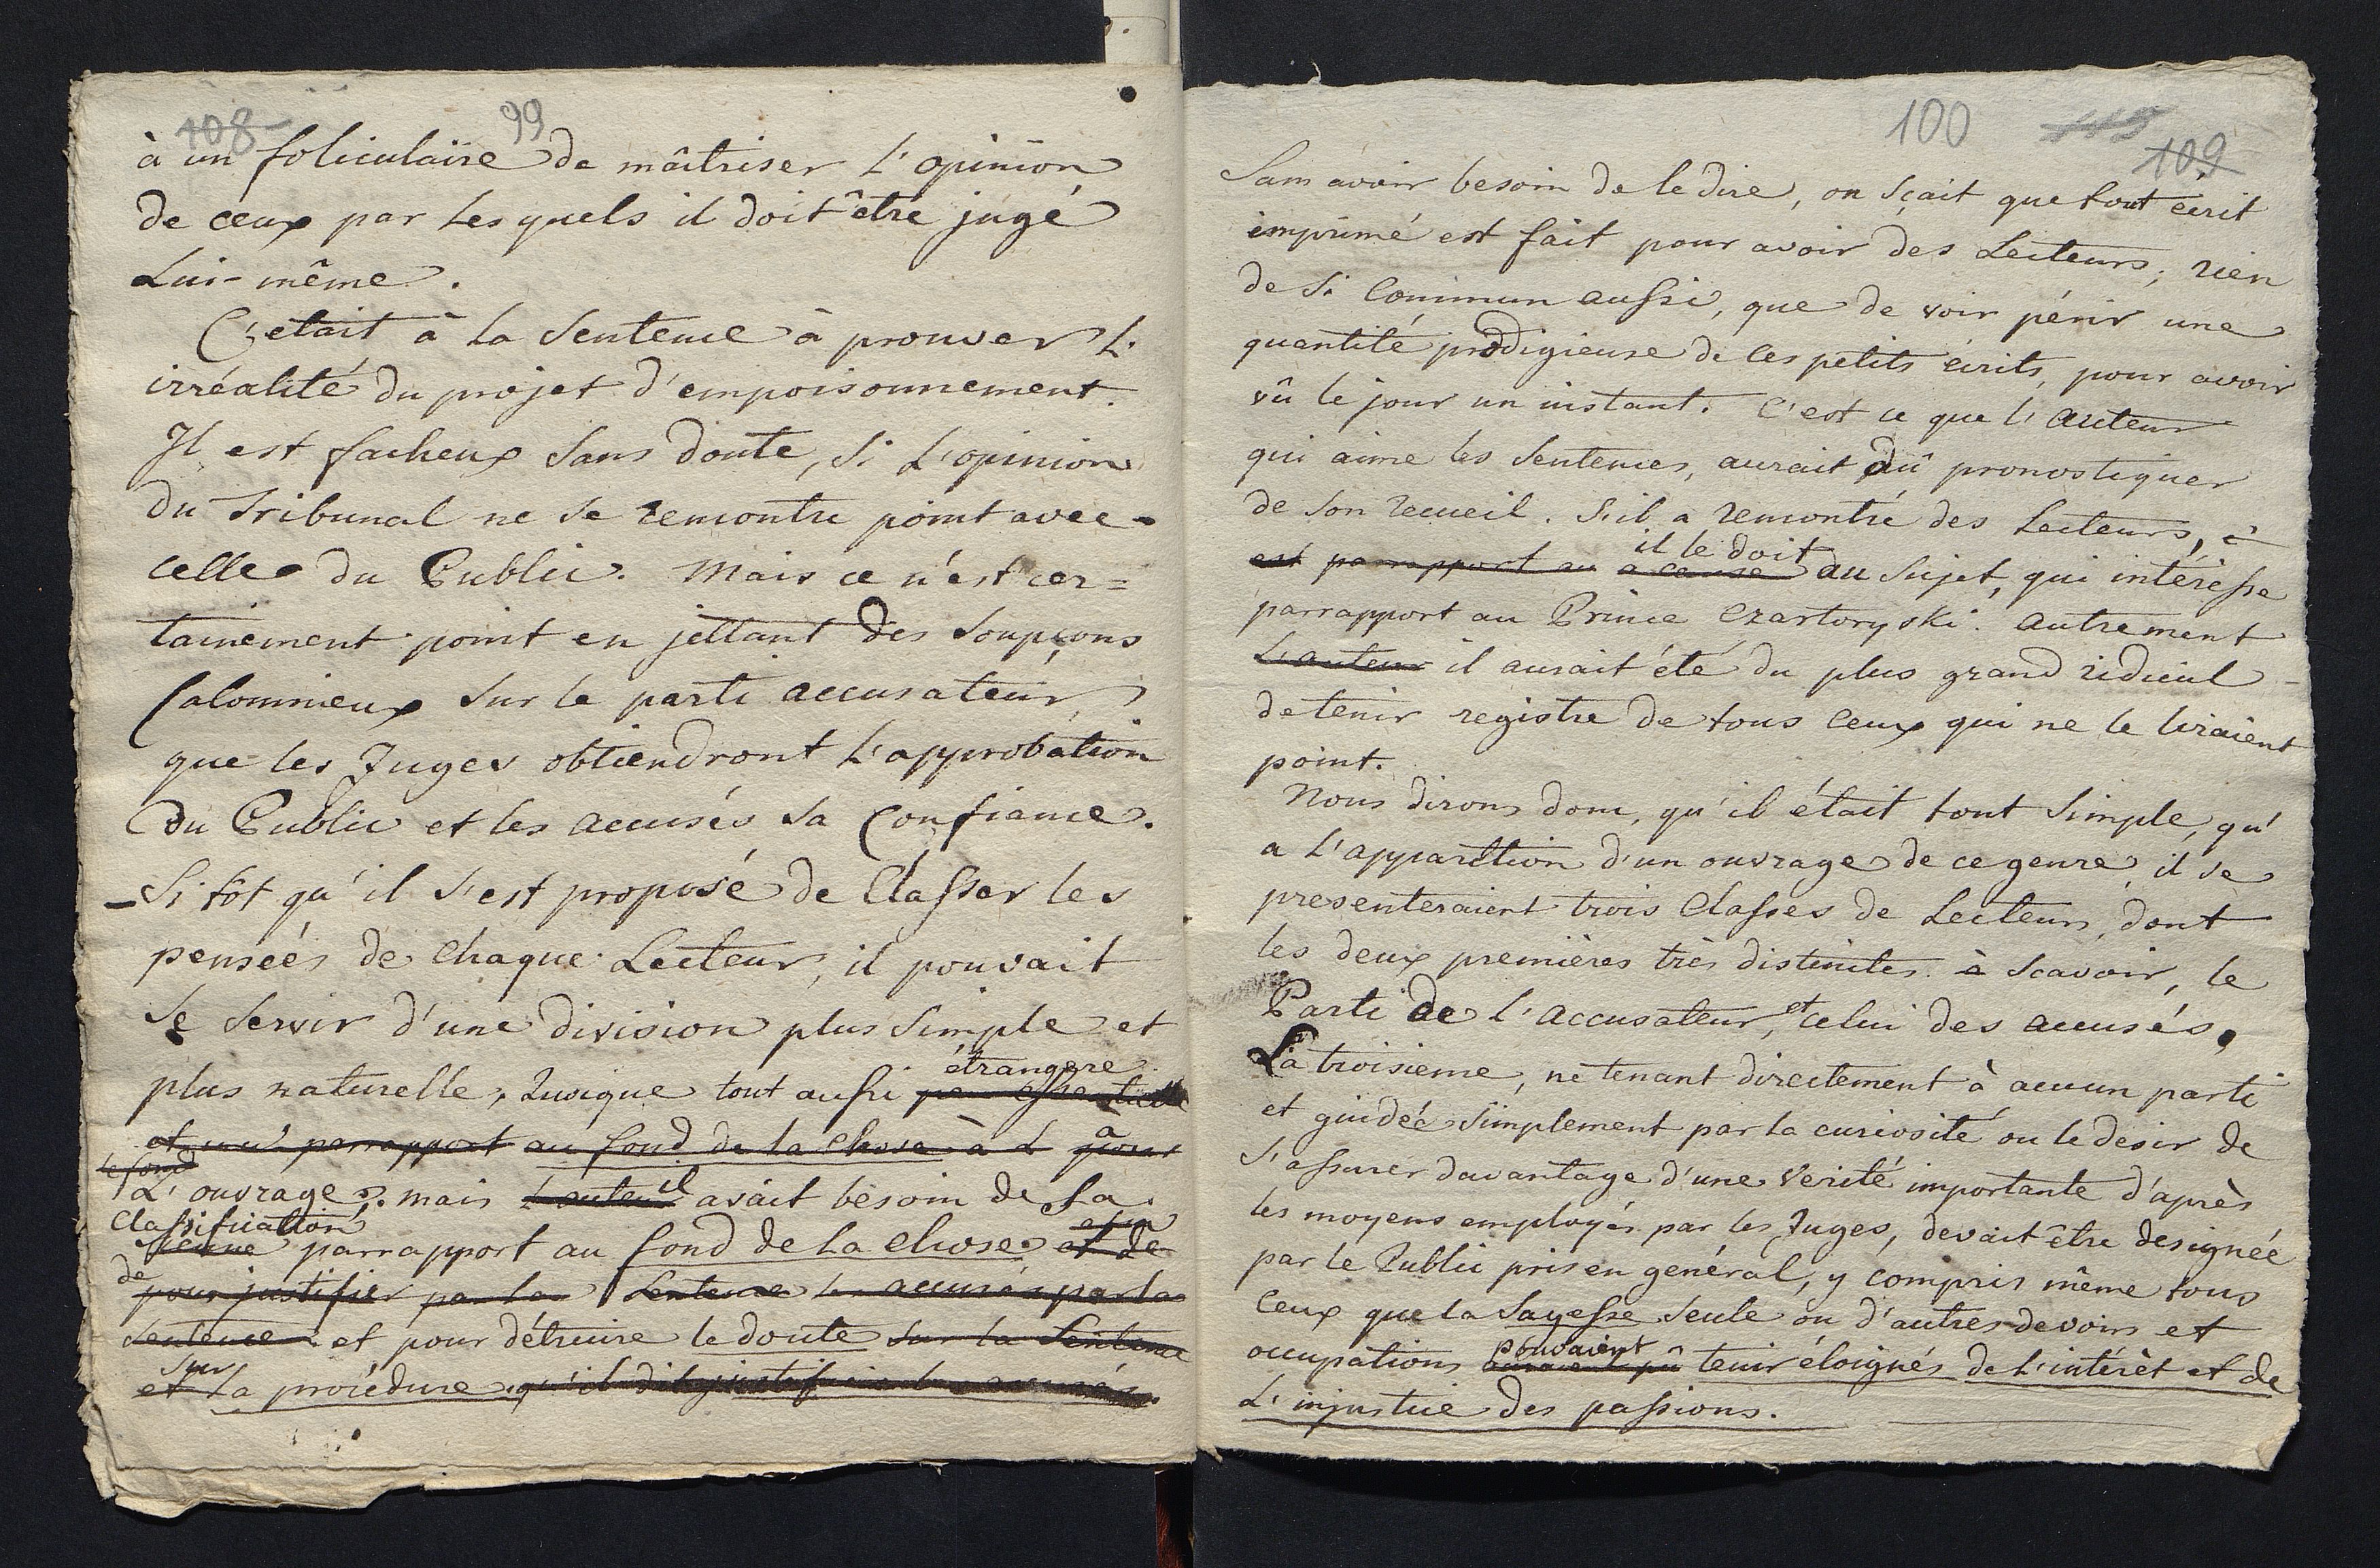 108 99
à un foliculaire de maîtriser L'opinion
de ceux par les quels il doit être jugé
Lui-même.
C'etait à la Sentence à prouver L'
irréalité du projet d'empoisonnement.
Il est facheux sans doute, si L'opinion
du Tribunal ne se rencontre point avec
celle du Public. Mais ce n'est cer=
tainement point en jettant des soupçons
Calomnieux sur le parti accusateur,
que les Juges obtiendront L'approbation
du Public et les accusés sa Confiance.
- Si tôt qu'il s'est proposé de Classer les
pensées de chaque Lecteur, il pouvait
se servir d'une division plus simple et
étrangere
plus naturelle, quoique tout aussi peu essentielle
parrapport au fond de la Chose à L a pour
le fond
L'ouvrage. mais L'auteur il avait besoin de la
Classification
sienne parrapport au fond de la chose et de
de
pour justifier par la Sentence les accusés par la
sentence et pour détruire le doute sur la Sentence
sur
et la procédure qu'il dit justifier les accusés.
100 109
Sans avoir besoin de le dire, on sçait que tout écrit
imprimé est fait pour avoir des Lecteurs; rien
de si Commun aussi, que de voir périr une
quantité prodigieuse de ces petits écrits, pour avoir
vû le jour un instant. C'est ce que l'auteur
qui aime les Sentences, aurait dû pronostiquer
de son recueil. S'il a rencontré des Lecteurs, c'
il le doit
est parrapport au a cause au sujet, qui intéresse
parrapport au Prince Czartoryski. autrement
L'auteur il aurait été du plus grand ridicul
de tenir registre de tous ceux qui ne le liraient
point.
Nous dirons donc, qu'il était tout simple, qu'
a L'apparition d'un ouvrage de ce genre, il se
presenteraient trois Classes de Lecteurs, dont
les deux premières très distinctes. à scavoir, le
Parti de l'accusateur, et celui des accusés,
La troisieme, ne tenant directement à aucun parti
et guideé simplement par la curiosité ou le desir de
s'assurer davantage d'une verité importante d'après
les moyens employés par les Juges, devait être designée
par le Public pris en genéral, y compris même tous
ceux que la Sagesse seule ou d'autres devoirs et
pouvaient
occupations auraient pû tenir éloignés de L'intérêt et de
L'injustice des passions.